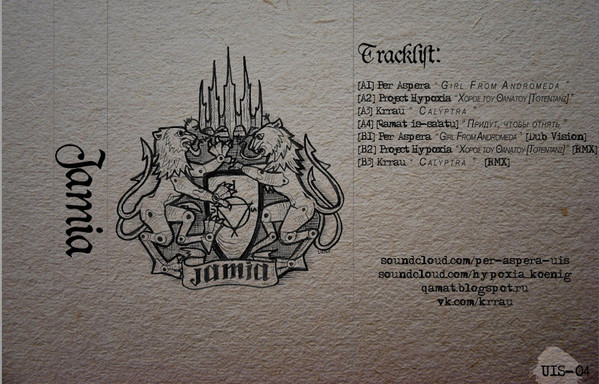 Jamia
jamia
Tracklist:
[A1] Per Aspera "Girl From Andromeda"
[A2] Project Hypoxia "Χορός του Θανάτου [Totentanz]"
[A3] Krrau "Calyptra"
[A4] [Qamat is-sa'atu] "Придут, чтобы отнять"
[B1] Per Aspera "Girl From Andromeda" [Dub Vision]
[B2] Project Hypoxia "Χορός του Θανάτου [Totentanz]" [RMX]
[B3] Krrau "Calyptra" [RMX]
soundcloud.com/per-aspera-uis
soundcloud.com/hypoxia_koenig
qamat.blogspot.ru
vk.com/krrau
UIS-04